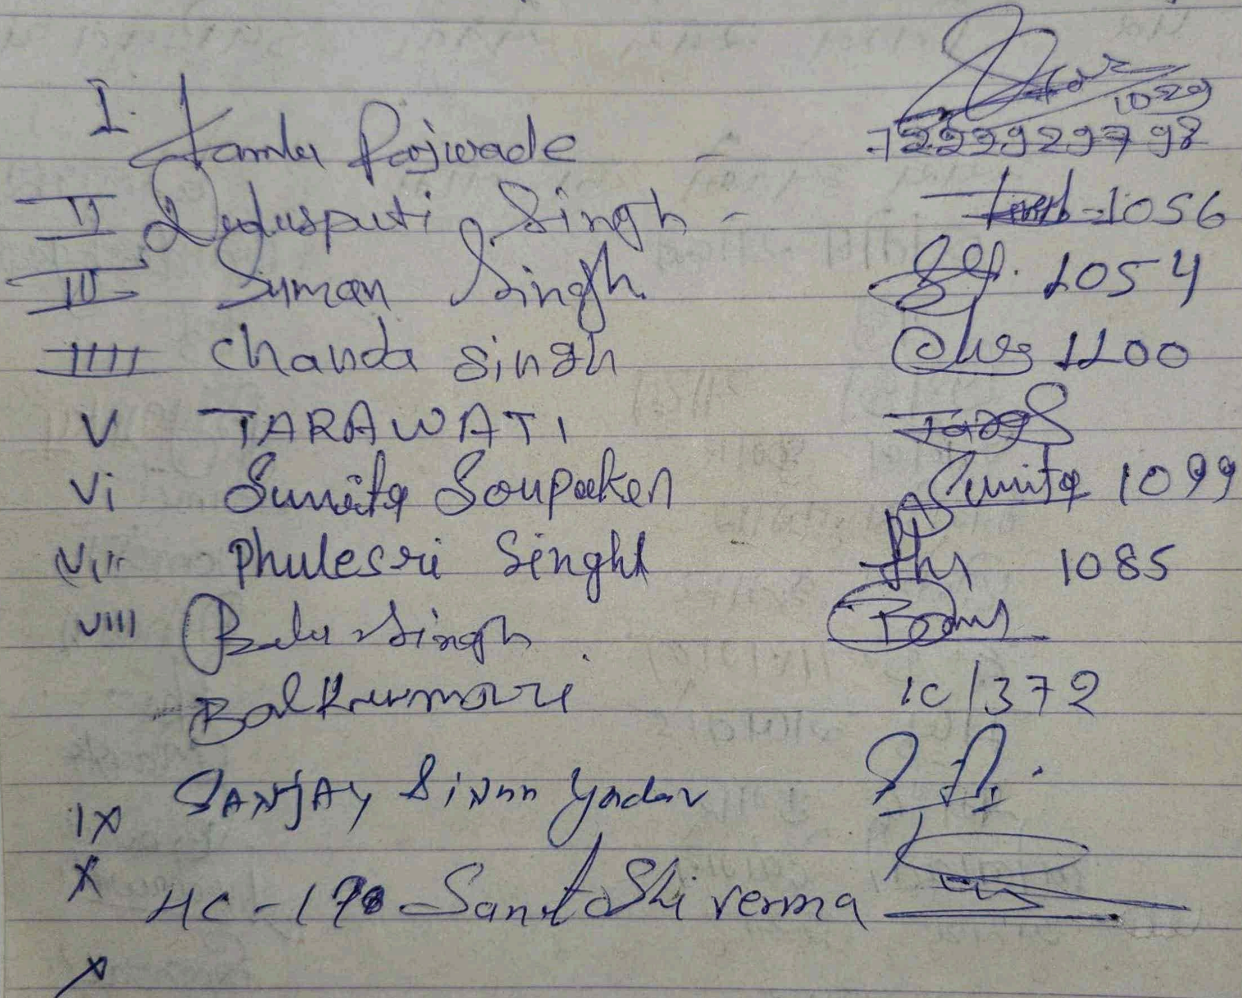 I. Kamla Rajwade - 1029
7222929798
II Singh - 1056
III Suman Singh 1054
IIII Chanda Singh 1100
V TARAWATI Tara
Vi Sunita Sonpaken Sunita 1099
Vii Phulesri Singh 1085
VIII Singh
Balkunmari 1C/372
IX SANJAY Yadav
X HC-178 Santoshi verma
X